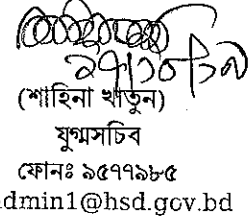 (শাহিনা খাতুন)
যুগ্মসচিব
ফোনঃ ৯৫৭৭৯৮৫
dmin1@hsd.gov.bd